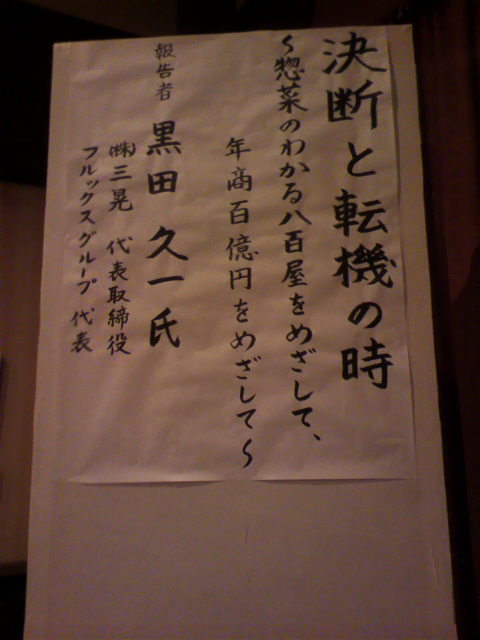 決断と転機の時
～惣菜のわかる八百屋をめざして、
年商百億円をめざして～
報告者 黒田 久一氏
㈱三晃 代表取締役
フルックスグループ 代表